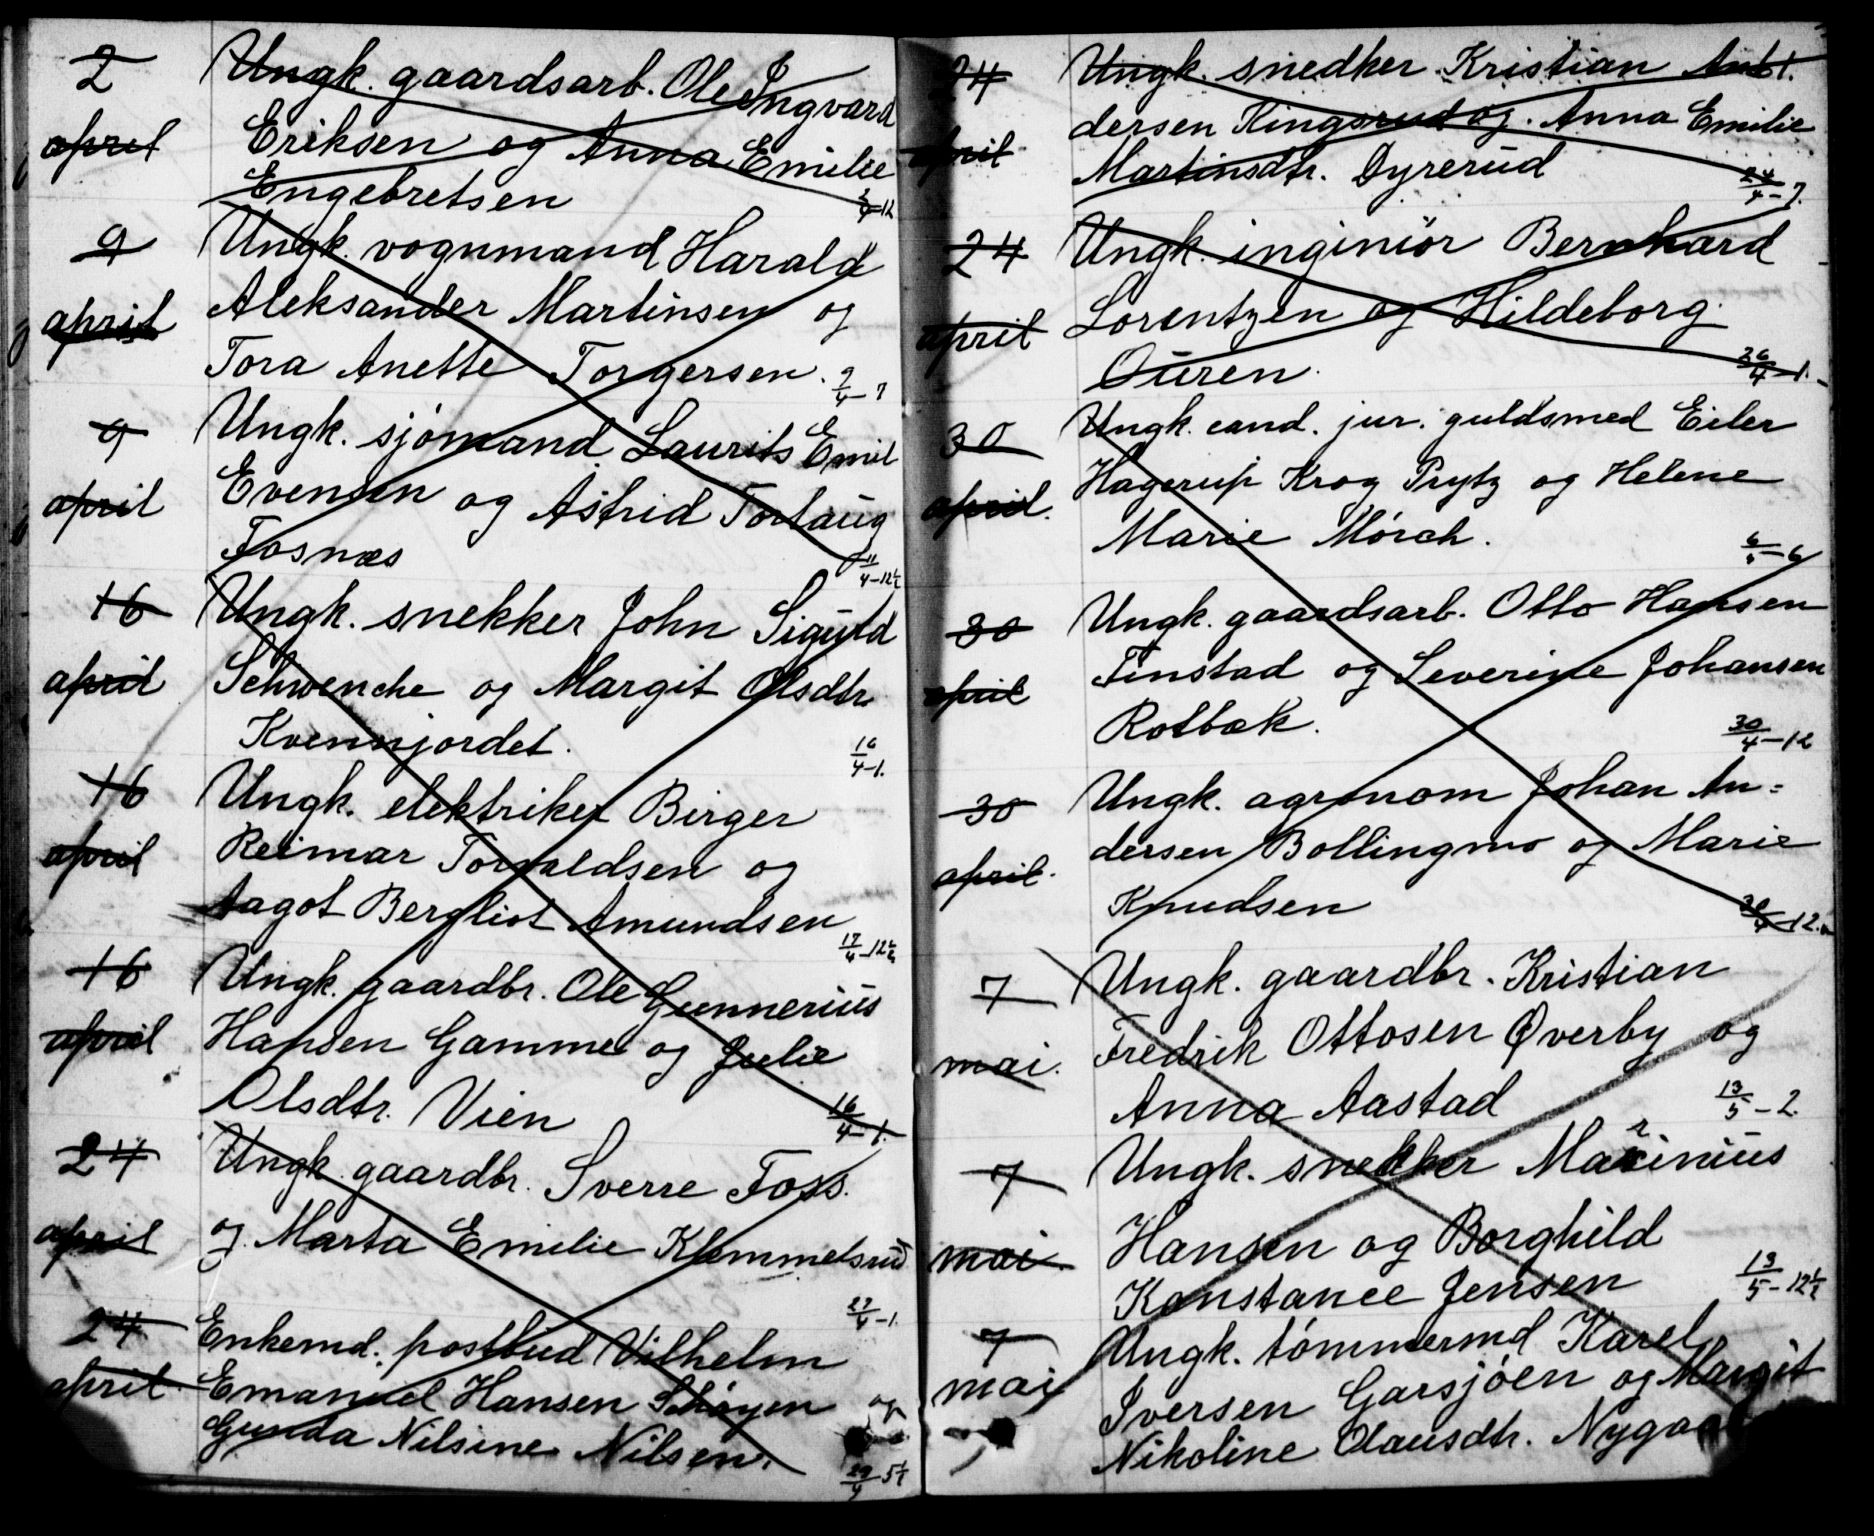 2 Ungk. gaardsarb. Ole Ingvard
april Eriksen og Anna Emilie
Engebretsen 2/4-12
9 Ungk. vognmand Harald
april Aleksander Martinsen og
Tora Anette Torgersen. 9/4-7
9 Ungk. sjömand Laurits Emil
april Evensen og Astrid Torlaug
Fosnæs 11/4-12½
16 Ungk. snekker John Siguld
april Schwencke og Margit Olsdtr.
Kvennjordet. 16/4-1.
16 Ungk. elektriker Birger
april Reimar Torvaldsen og
Aagot Bergliot Amundsen 17/4-12½
16 Ungk. gaardbr. Ole Gunnerius
april Hansen Gamme og Julie
Olsdtr. Vien 16/4-1.
24 Ungk. gaardbr. Sverre Foss.
april og. Marta Emilie Klemmetsrud
27/4-1.
24 Enkemd. postbud Vilhelm
april Emanuel Hansen Schøyen og
Gunda Nilsine Nilsen. 29/4 5½
24 Ungk. snedker Kristian
april dersen Kingsrud og. Anna Emilie
Martinsdtr. Dyrerud 24/4-7.
24 Ungk. inginiör Bernhard
april Lorentzen og Hildeborg
Ouren. 26/4-1.
30 Ungk. cand. jur. guldsmed Eiler
april. Hagerup Krog Prytz og Helene
Marie Mörch. 6/5-6
30 Ungk. gaardsarb. Otto Hansen
april Finstad og Severine Johansen
Rotbæk. 30/4-12
30 Ungk. agronom Johan An=
april. dersen Bollingmo og Marie
Knudsen 30/4-12.
7 Ungk. gaardbr. Kristian
mai. Fredrik Ottosen Øverby og
Anna Aastad 13/5-2.
7 Ungk. snekker Marinius
mai. Hansen og Borghild
Konstance Jensen 13/5-12½
7 Ungk. tömmermd Karel
mai Iversen Garsjöen og Margit
Nikoline Olausdtr.